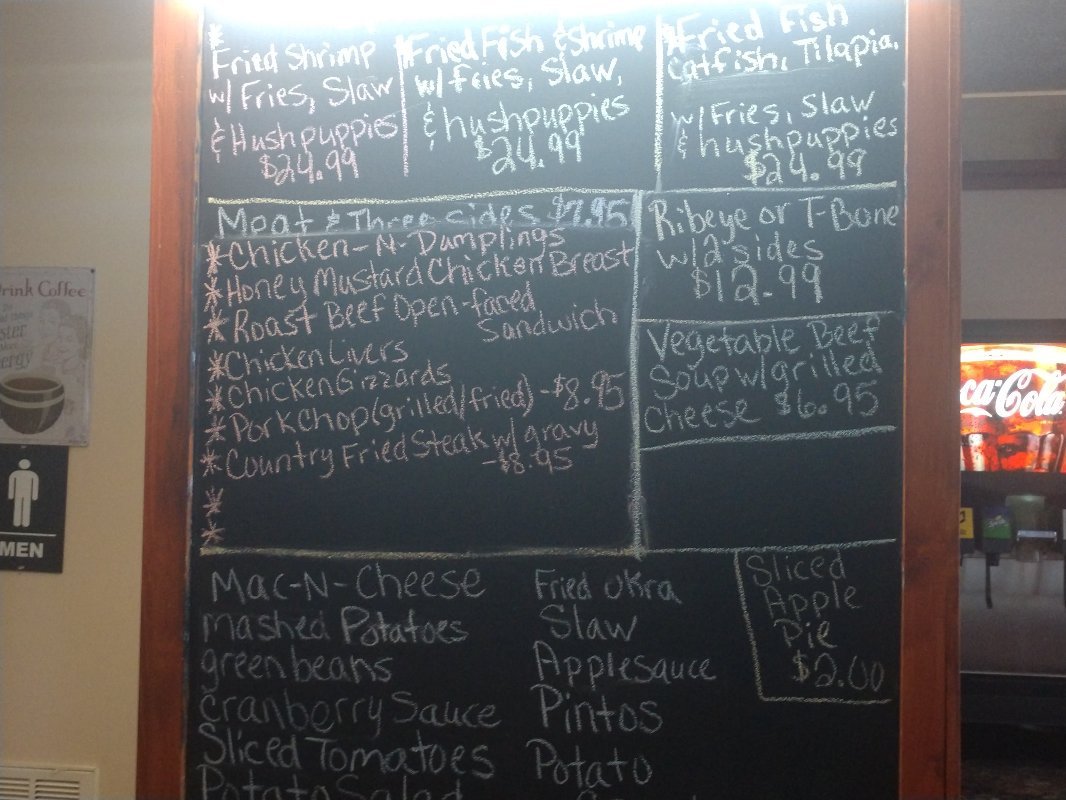 * Fried Shrimp
w/ Fries, Slaw
& Hushpuppies
$24.99
*Fried Fish & Shrimp
w/ fries, Slaw,
& hushpuppies
$24.99
*Fried Fish
Catfish, Tilapia,
w/ Fries, Slaw
& hushpuppies
$24.99
Meat & Three sides $7.95
*Chicken-N-Dumplings
*Honey Mustard Chicken Breast
*Roast Beef Open-faced
Sandwich
*Chicken Livers
*Chicken Gizzards
*Pork Chop (grilled/fried) -$8.95
*Country Fried Steak w/ gravy
-$8.95
*
*
Ribeye or T-Bone
w/2 sides
$12.99
Vegetable Beef
Soup w/grilled
Cheese $6.95
Mac-N-Cheese
mashed Potatoes
green beans
Cranberry Sauce
Sliced Tomatoes
Potato Salad
Fried Okra
Slaw
Applesauce
Pintos
Potato
Sliced
Apple
Pie
$2.00
Drink Coffee
MEN
Coca-Cola